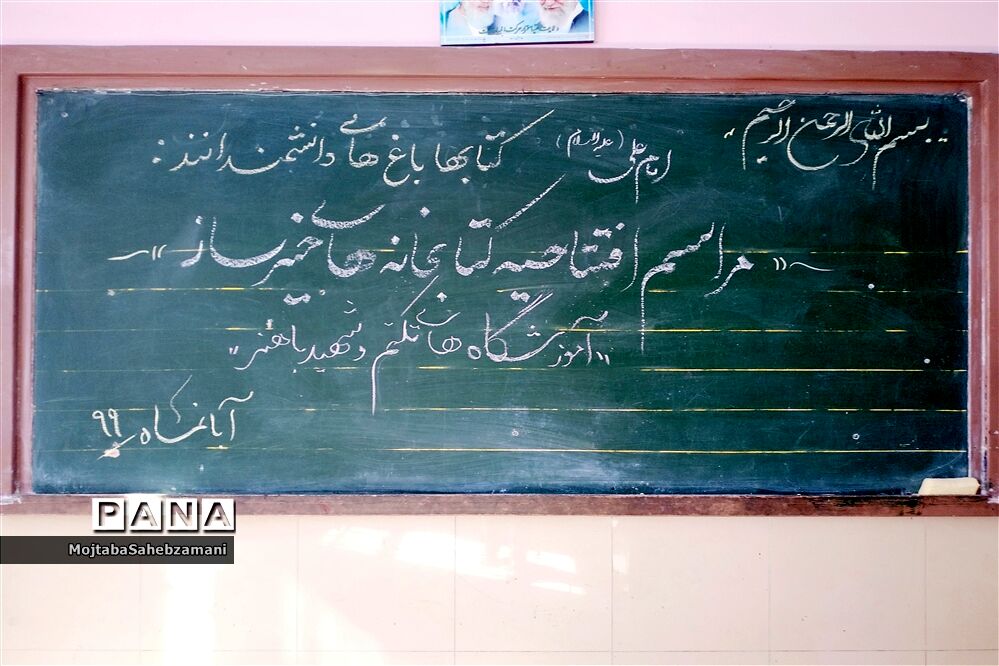 بسم الله الرحمن الرحیم
امام علی (علیه السلام) کتابها باغ های دانشمندانند:
مراسم افتتاحیه کتابخانه های خیر ساز
"آموزشگاه های تکتم و شهید باهنر"
آبانماه ۹۹
PANA
MojtabaSahebzamani